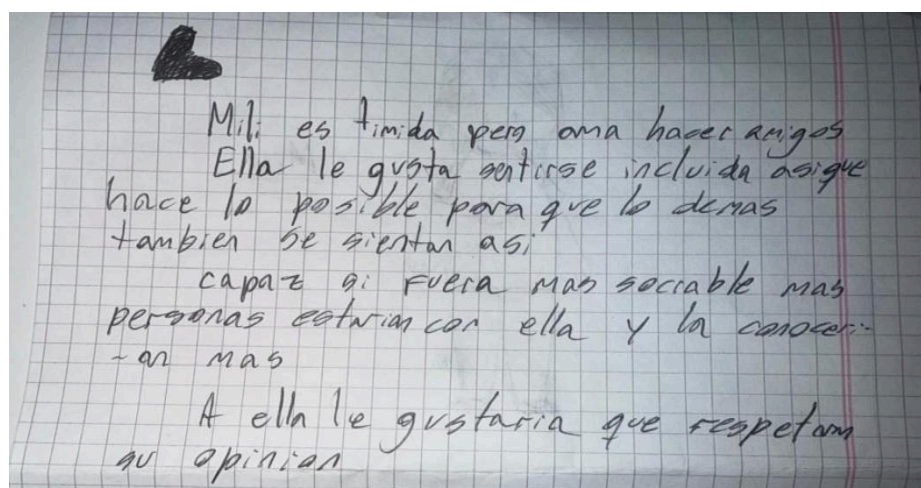 Mili es timida pero ama hacer amigos
Ella le gusta sentirse incluida asique
hace lo posible para que lo demas
tambien se sientan asi
capaz si fuera mas sociable mas
personas estarian con ella y la conoceri-
-an mas
A ella le gustaria que respetam
su opinian